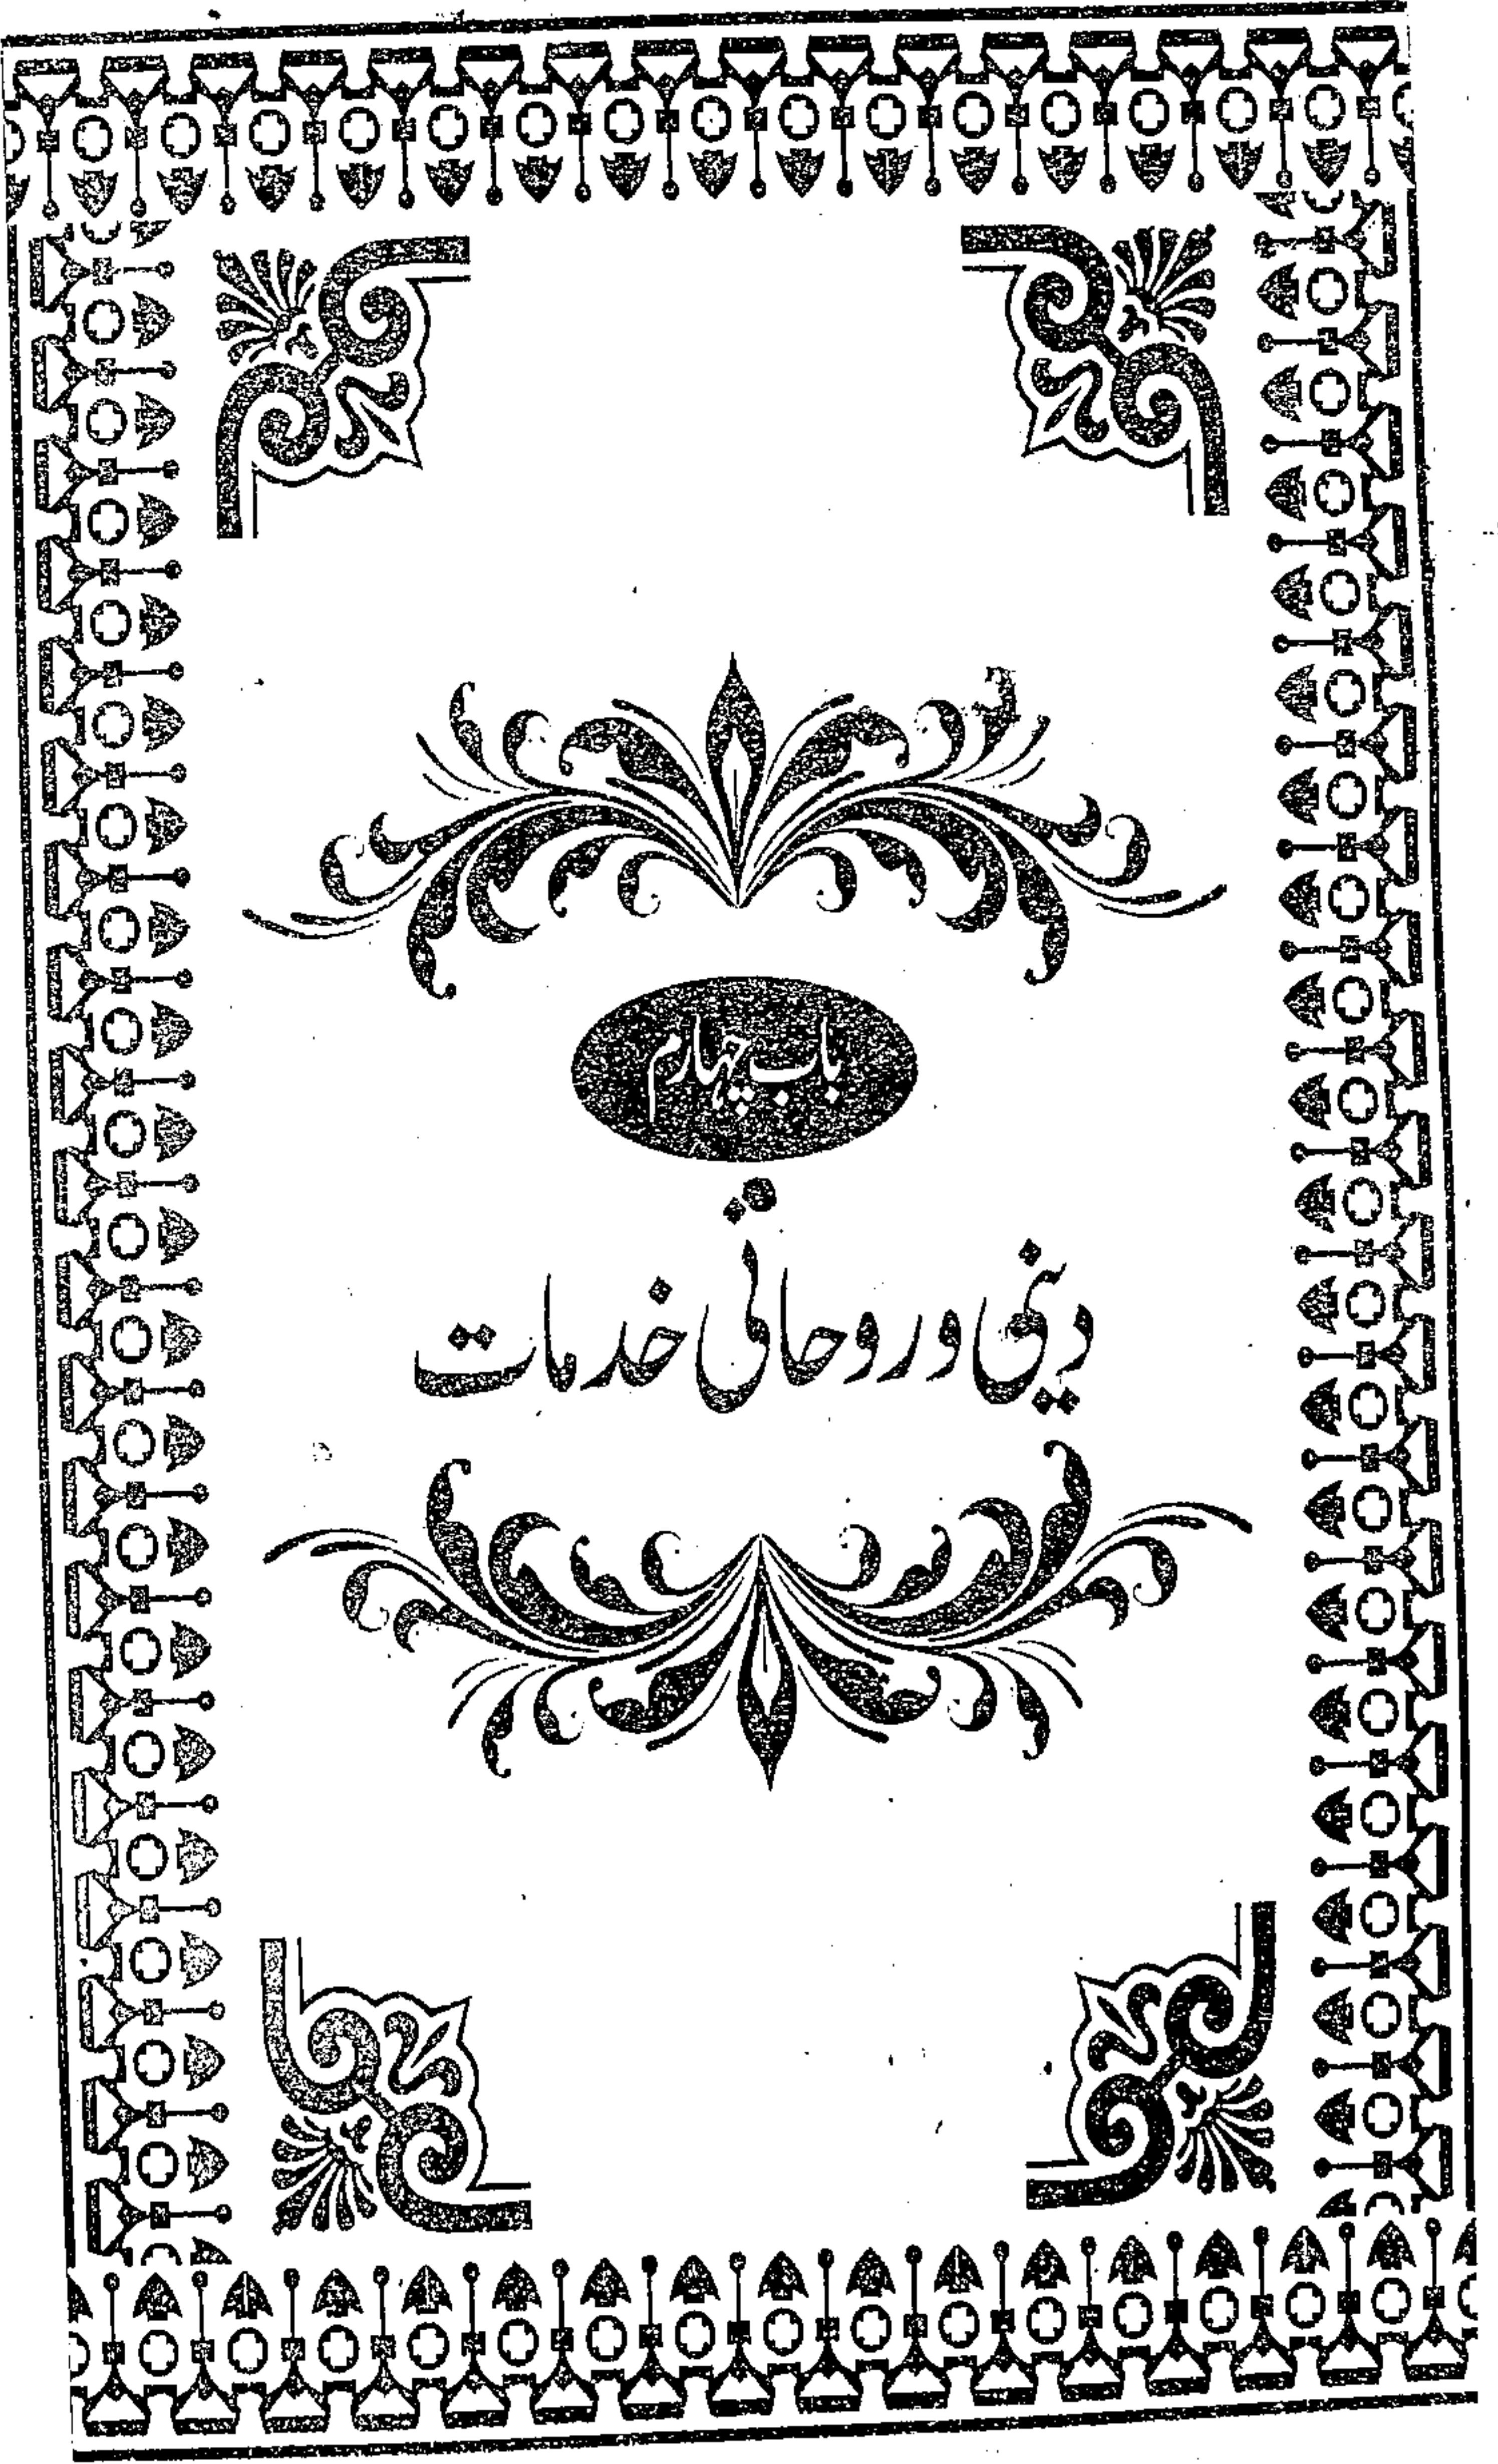 باب چہارم
دینی و روحانی خدمات